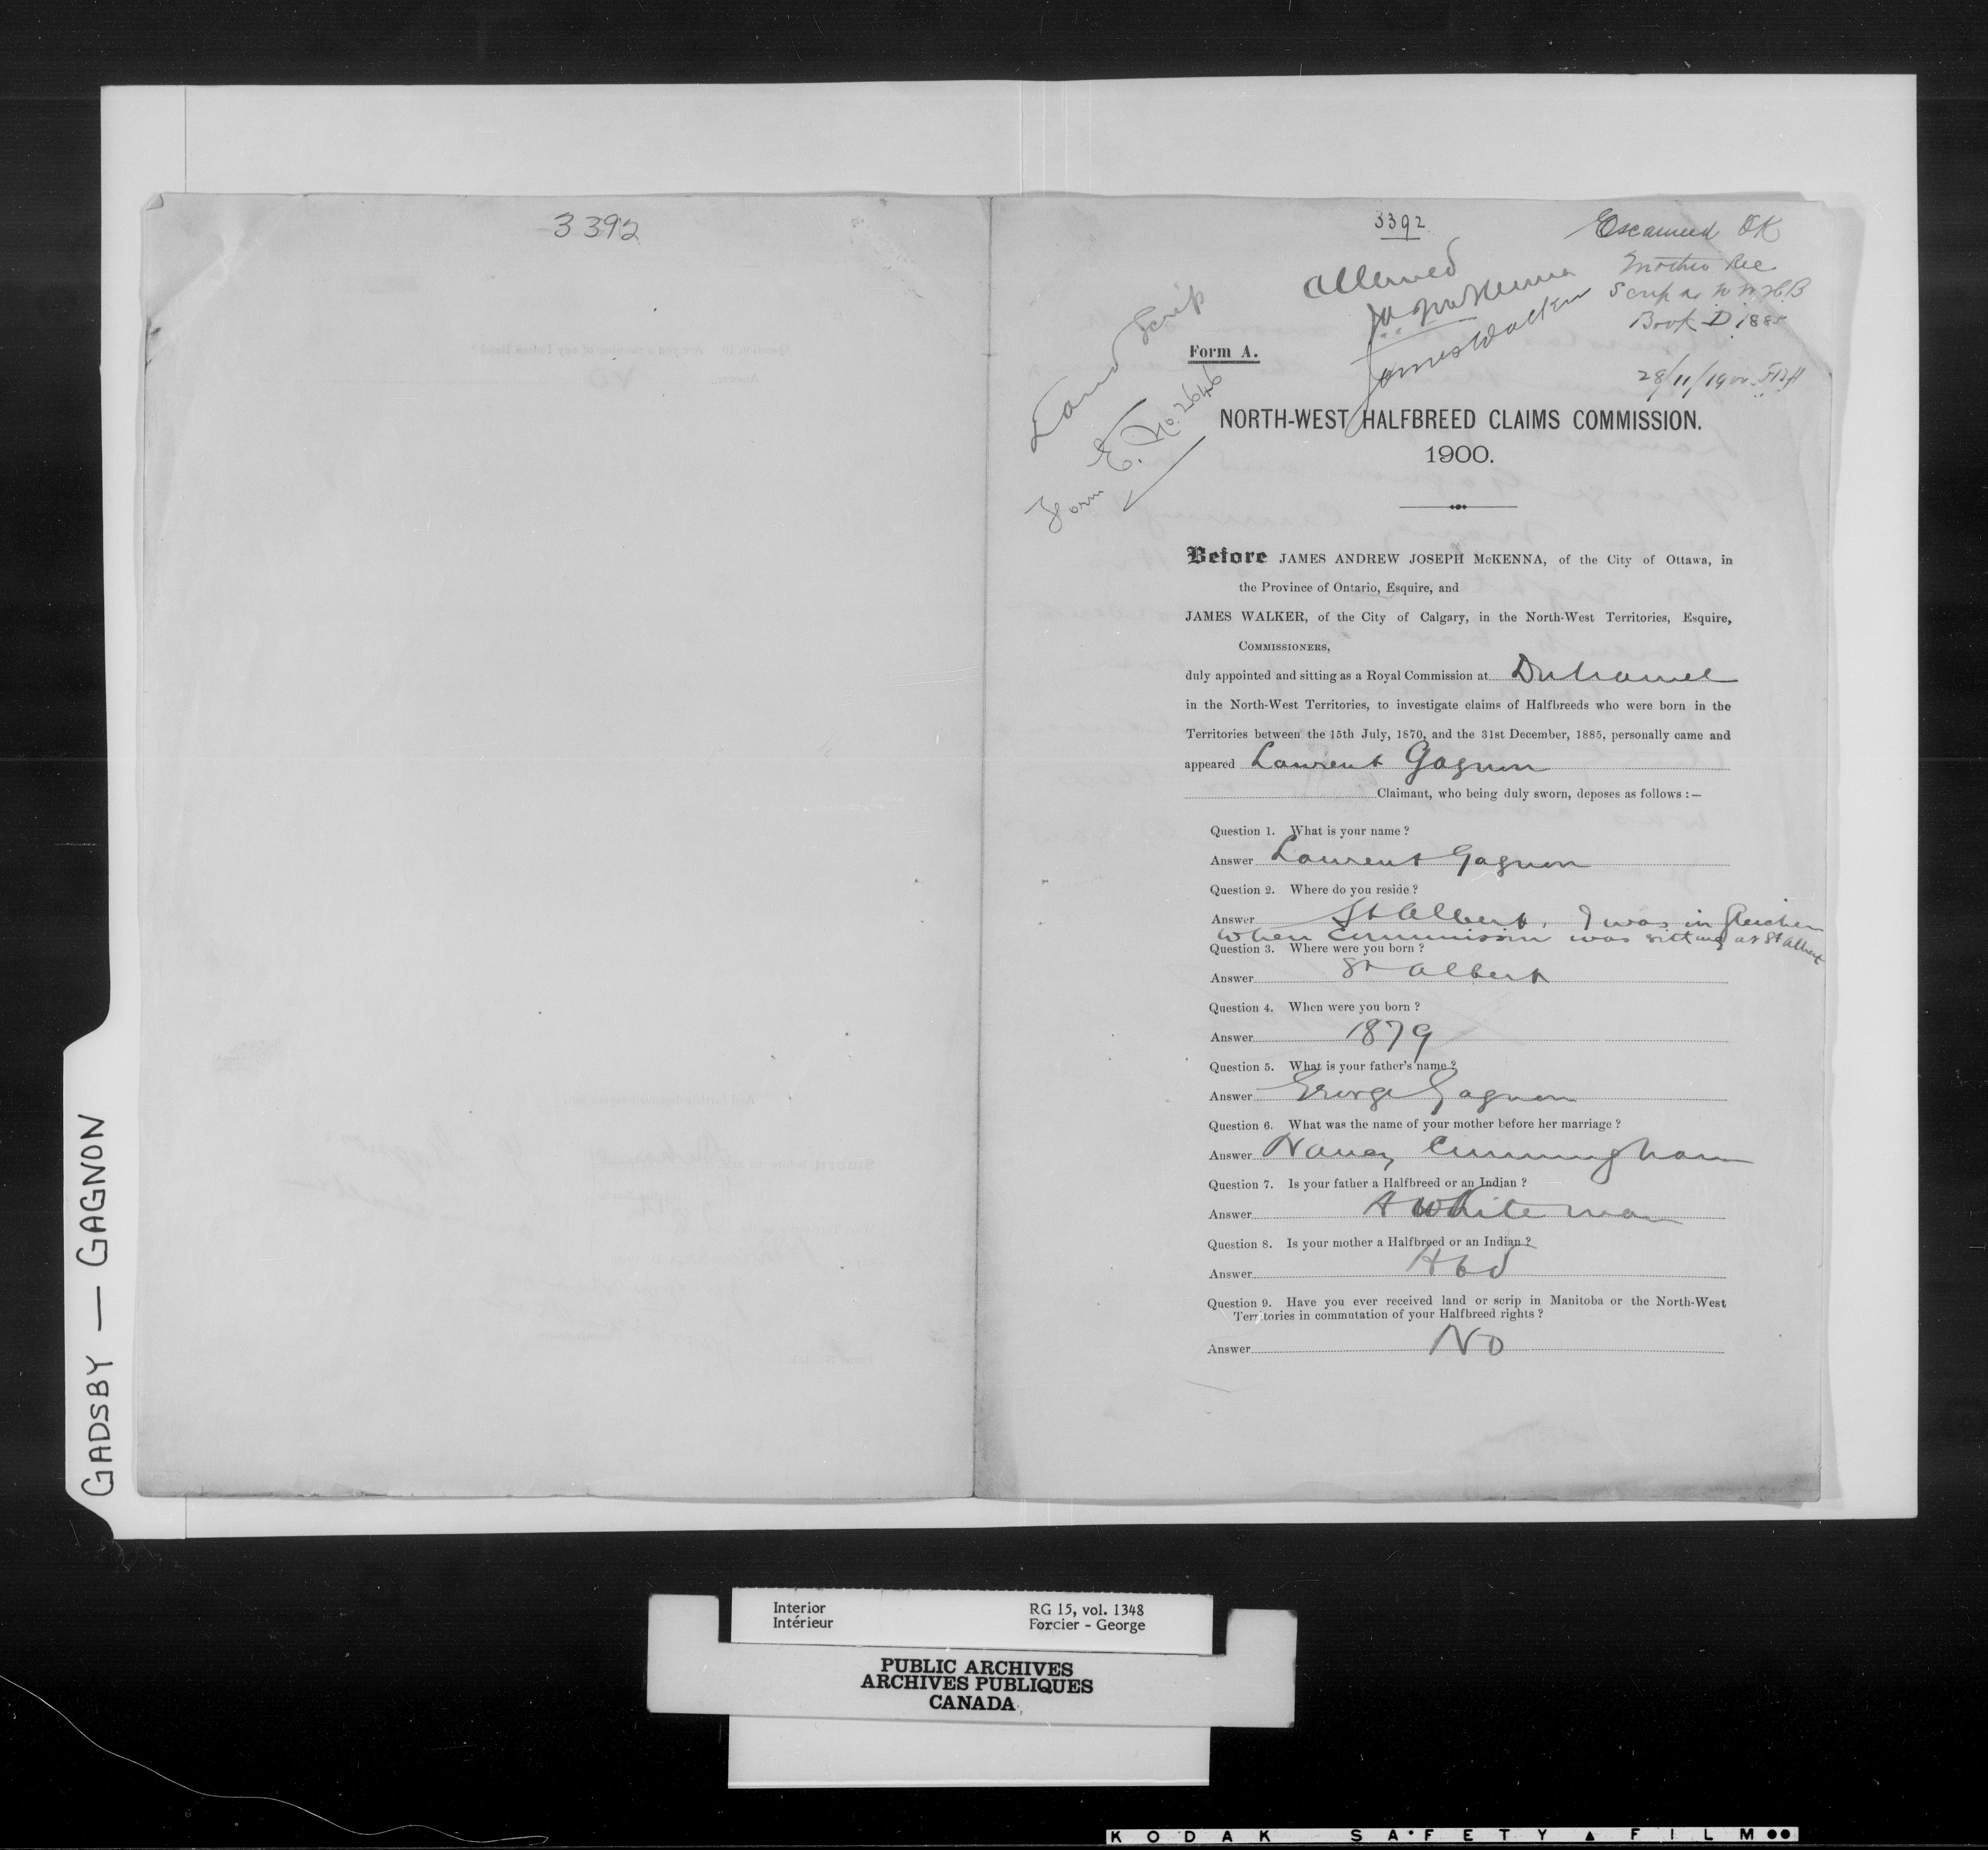 3392
3392
Examined OK
Mother Rec
Scrip as N W H B
Book D 1885
28/11/1900
Allowed
JA McKenna
James Walker
Land Scrip
Form E. No. 2646
Form A.
NORTH-WEST HALFBREED CLAIMS COMMISSION.
1900.
Before JAMES ANDREW JOSEPH McKENNA, of the City of Ottawa, in
the Province of Ontario, Esquire, and
JAMES WALKER, of the City of Calgary, in the North-West Territories, Esquire,
COMMISSIONERS,
duly appointed and sitting as a Royal Commission at Duhamel
in the North-West Territories, to investigate claims of Halfbreeds who were born in the
Territories between the 15th July, 1870, and the 31st December, 1885, personally came and
appeared Laurent Gagnon
Claimant, who being duly sworn, deposes as follows :—
Question 1. What is your name ?
Answer Laurent Gagnon
Question 2. Where do you reside ?
Answer St Albert. I was in Gleichen
when Commission was sitting at St Albert
Question 3. Where were you born ?
Answer St Albert
Question 4. When were you born ?
Answer 1879
Question 5. What is your father's name ?
Answer George Gagnon
Question 6. What was the name of your mother before her marriage ?
Answer Nancy Cunningham
Question 7. Is your father a Halfbreed or an Indian ?
Answer A White man
Question 8. Is your mother a Halfbreed or an Indian ?
Answer Hbd
Question 9. Have you ever received land or scrip in Manitoba or the North-West
Territories in commutation of your Halfbreed rights ?
Answer No
GADSBY — GAGNON
Interior
Intérieur
RG 15, vol. 1348
Forcier - George
PUBLIC ARCHIVES
ARCHIVES PUBLIQUES
CANADA
KODAK SAFETY FILM